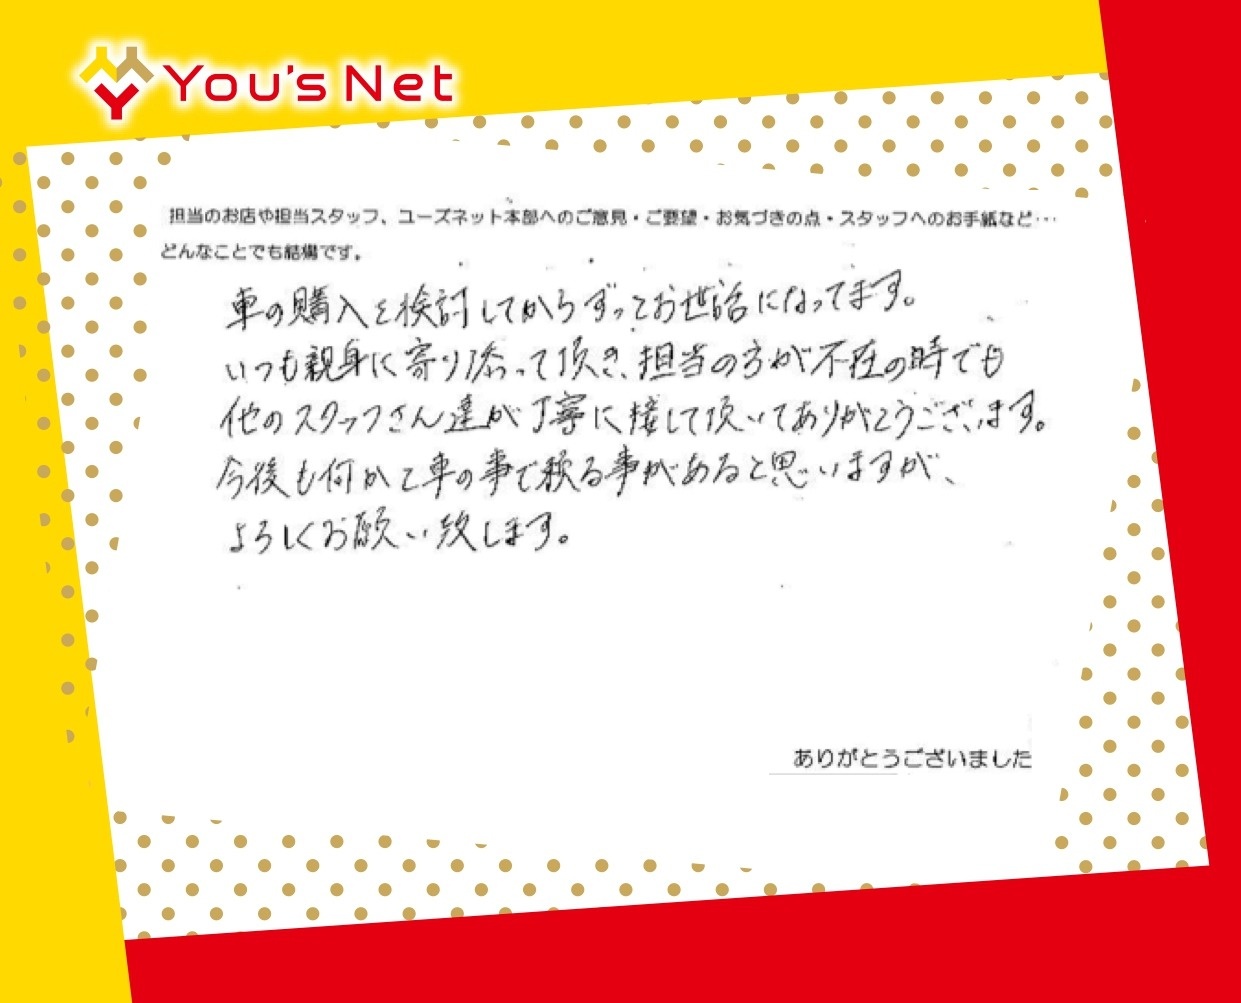 You's Net
担当のお店や担当スタッフ、ユーズネット本部へのご意見・ご要望・お気づきの点・スタッフへのお手紙など…
どんなことでも結構です。
車の購入を検討してからずっとお世話になってます。
いつも親身に寄り添って頂き、担当の方が不在の時でも
他のスタッフさん達が丁寧に接して頂いてありがとうございます。
今後も何かと車の事で頼る事があると思いますが、
よろしくお願い致します。
ありがとうございました